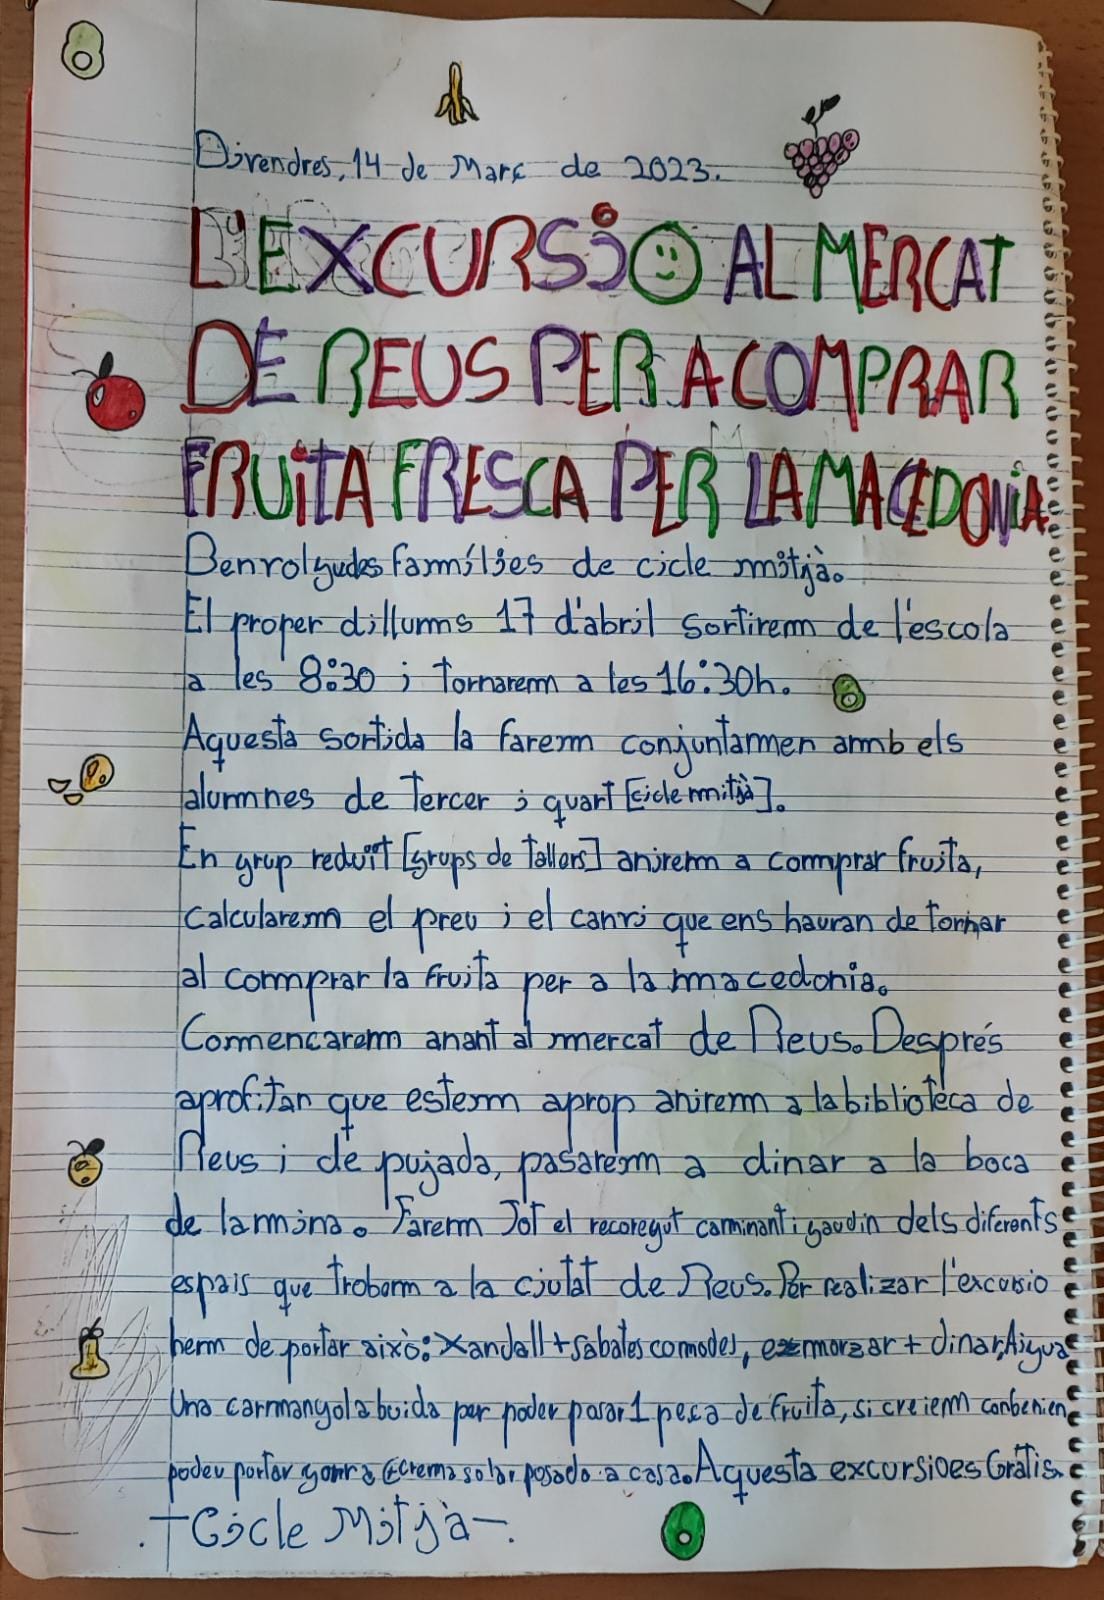 Divendres, 14 de Març de 2023.
L'EXCURSIÓ AL MERCAT
DE REUS PER A COMPRAR
FRUITA FRESCA PER LA MACEDONIA
Benvolgudes famílies de cicle mitjà.
El proper dilluns 17 d'abril sortirem de l'escola
a les 8:30 i tornarem a les 16:30h.
Aquesta sortida la farem conjuntanmen amb els
alumnes de tercer i quart [cicle mitjà].
En grup reduït [grups de tallers] anirem a comprar fruita,
calcularem el preu i el canvi que ens hauran de tornar
al comprar la fruita per a la macedonia.
Comencarem anant al mercat de Reus. Després
aprofitan que estem aprop anirem a la biblioteca de
Reus i de pujada, pasarem a dinar a la boca
de la mina. Farem Tot el recoregut caminant i gaudin dels diferents
espais que trobam a la ciutat de Reus. Per realizar l'excursio
hem de portar això: Xandall + sabates comodes, esmorzar + dinar, Aigua
Una carmangola buida per poder posar 1 peça de fruita, si creiem conbenien
podeu portar gorra i crema solar posada a casa. Aquesta excursio es Gratis.
-Cicle Mitjà-.